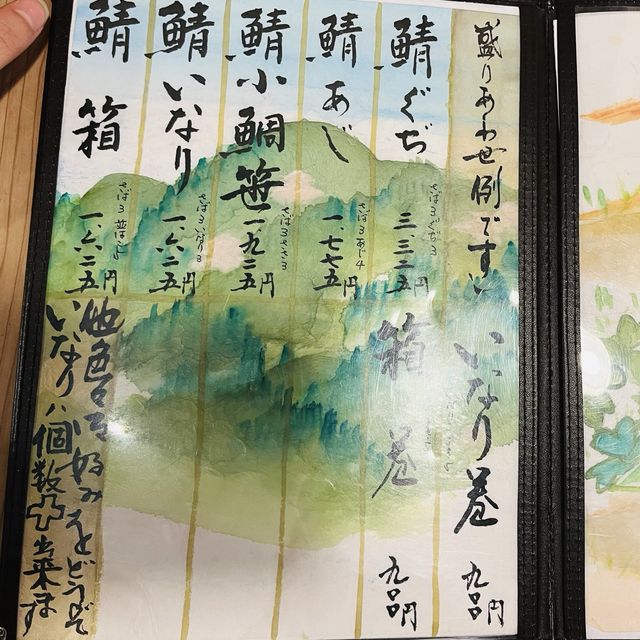 盛りあわせ例です
鯖ぐぢ
さば3ぐぢ3
鯖あじ
さば3あじ4
一、七七五円
鯖小鯛笹
さば3ささ3
一、九二五円
鯖いなり
さば3いなり3
一、六二五円
鯖箱
さば3
一、六二五円
いなり巻
九〇〇円
箱巻
九〇〇円
他色々お好み
どうぞ
いなりハ個数
出来ます